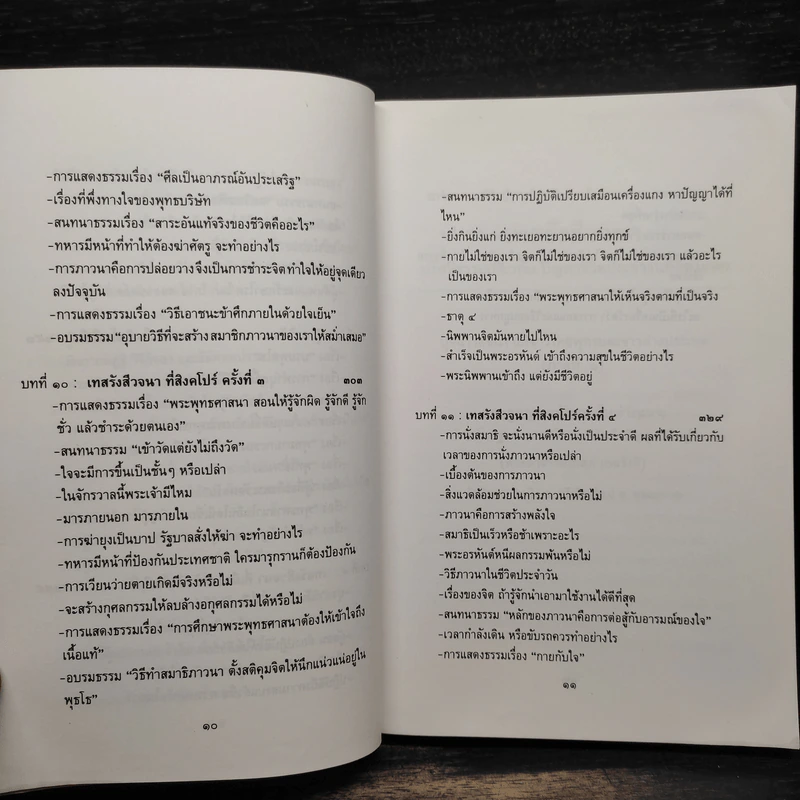 -การแสดงธรรมเรื่อง “ศีลเป็นอาภรณ์อันประเสริฐ”
-เรื่องที่พึ่งทางใจของพุทธบริษัท
-สนทนาธรรมเรื่อง “สาระอันแท้จริงของชีวิตคืออะไร”
-ทหารมีหน้าที่ทำให้ต้องฆ่าศัตรู จะทำอย่างไร
-การภาวนาคือการปล่อยวาง จึงเป็นการชำระจิต ทำใจให้อยู่จุดเดียว
ลงปัจจุบัน
-การแสดงธรรมเรื่อง “วิธีเอาชนะข้าศึกภายในด้วยใจเย็น”
-อบรมธรรม“อุบายวิธีที่จะสร้าง สมาชิกภาวนาของเราให้สม่ำเสมอ”
บทที่ ๑๐ : เทสรังสีวจนา ที่สิงคโปร์ ครั้งที่ ๓ ๓๐๓
-การแสดงธรรมเรื่อง “พระพุทธศาสนา สอนให้รู้จักผิด รู้จักดี รู้จัก
ชั่ว แล้วชำระด้วยตนเอง”
-สนทนาธรรม “เข้าวัดแต่ยังไม่ถึงวัด”
-ใจจะมีการขึ้นเป็นชั้นๆ หรือเปล่า
-ในจักรวาลนี้พระเจ้ามีไหม
-มารภายนอก มารภายใน
-การฆ่ายุงเป็นบาป รัฐบาลสั่งให้ฆ่า จะทำอย่างไร
-ทหารมีหน้าที่ป้องกันประเทศชาติ ใครมารุกรานก็ต้องป้องกัน
-การเวียนว่ายตายเกิดมีจริงหรือไม่
-จะสร้างกุศลกรรมให้ลบล้างอกุศลกรรมได้หรือไม่
-การแสดงธรรมเรื่อง “การศึกษาพระพุทธศาสนาต้องให้เข้าใจถึง
เนื้อแท้”
-อบรมธรรม “วิธีทำสมาธิภาวนา ตั้งสติคุมจิตให้นึกแน่วแน่อยู่ใน
พุธโธ”
๑๐
-สนทนาธรรม “การปฏิบัติเปรียบเสมือนเครื่องแกง หาปัญญาได้ที่
ไหน”
-ยิ่งกินยิ่งแก่ ยิ่งทะเยอทะยานอยากยิ่งทุกข์
-กายไม่ใช่ของเรา จิตก็ไม่ใช่ของเรา จิตก็ไม่ใช่ของเรา แล้วอะไร
เป็นของเรา
-การแสดงธรรมเรื่อง “พระพุทธศาสนาให้เห็นจริงตามที่เป็นจริง
-ธาตุ ๔
-นิพพานจิตมันหายไปไหน
-สำเร็จเป็นพระอรหันต์ เข้าถึงความสุขในชีวิตอย่างไร
-พระนิพพานเข้าถึง แต่ยังมีชีวิตอยู่
บทที่ ๑๑ : เทสรังสีวจนา ที่สิงคโปร์ครั้งที่ ๔ ๓๒๙
-การนั่งสมาธิ จะนั่งนานดีหรือนั่งเป็นประจำดี ผลที่ได้รับเกี่ยวกับ
เวลาของการนั่งภาวนาหรือเปล่า
-เบื้องต้นของการภาวนา
-สิ่งแวดล้อมช่วยในการภาวนาหรือไม่
-ภาวนาคือการสร้างพลังใจ
-สมาธิเป็นเร็วหรือช้าเพราะอะไร
-พระอรหันต์หนีผลกรรมพ้นหรือไม่
-วิธีภาวนาในชีวิตประจำวัน
-เรื่องของจิต ถ้ารู้จักนำเอามาใช้งานได้ดีที่สุด
-สนทนาธรรม “หลักของภาวนาคือการต่อสู้กับอารมณ์ของใจ”
-เวลากำลังเดิน หรือขับรถควรทำอย่างไร
-การแสดงธรรมเรื่อง “กายกับใจ”
๑๑